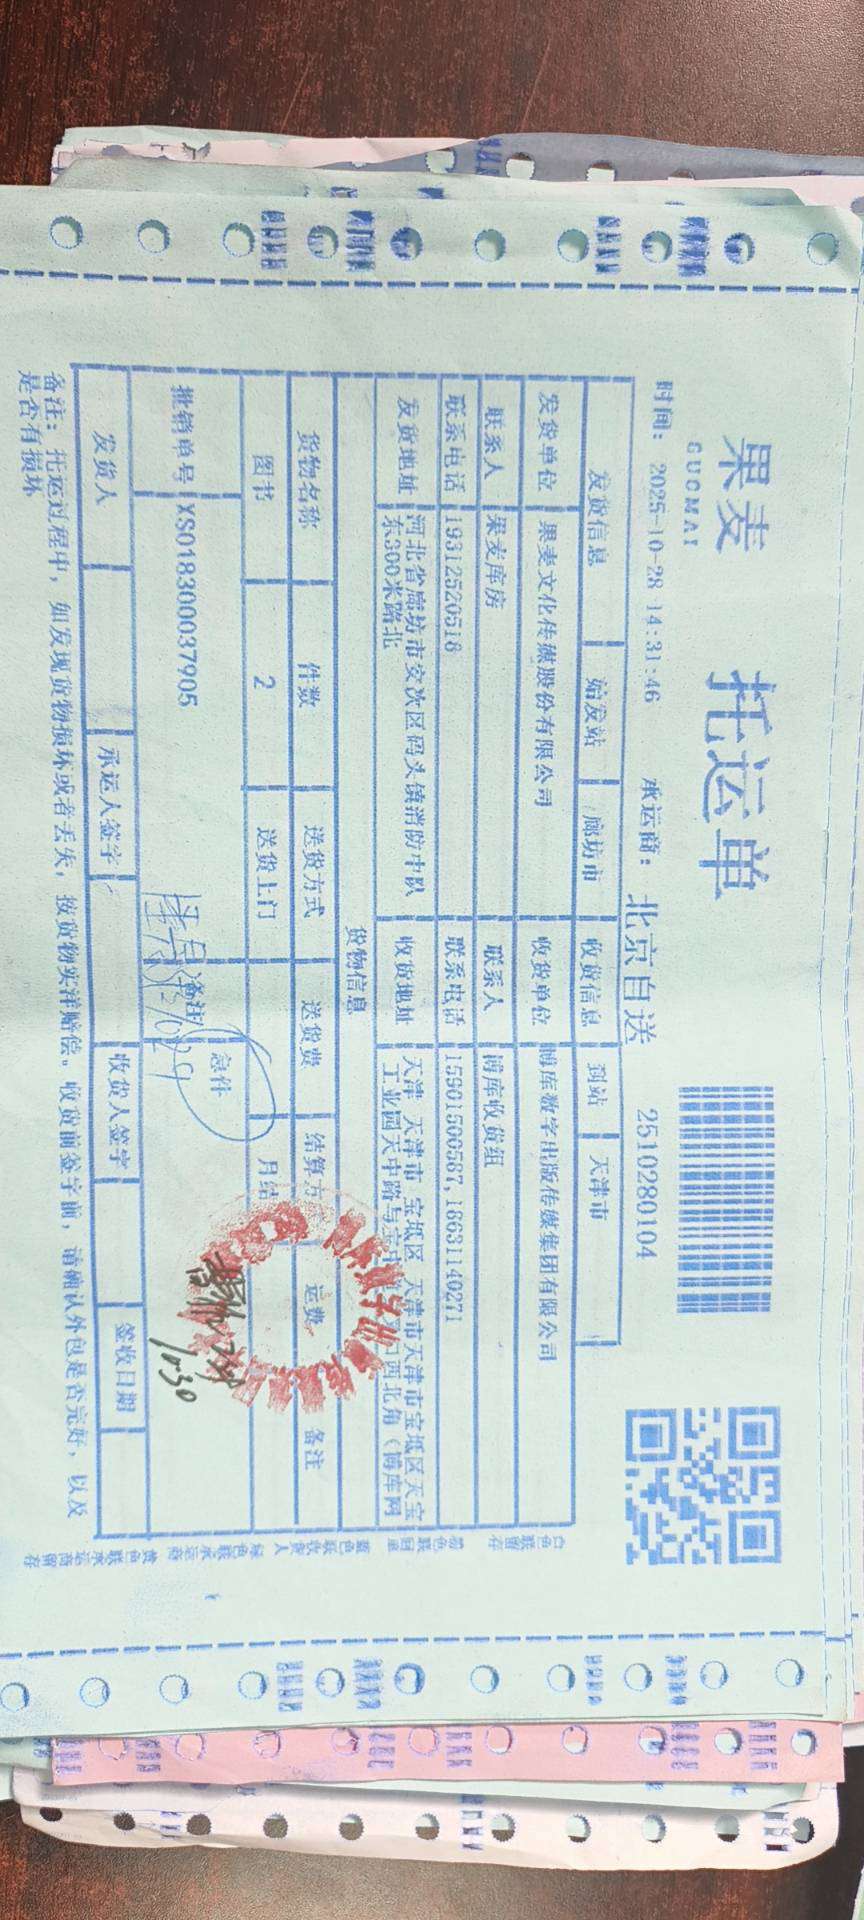 果麦
GUOMAI
托运单
时间: 2025-10-28 14:31:46 承运商: 北京自送 2510280104
发货信息 始发站 廊坊市 收货信息 到站 天津市
发货单位 果麦文化传媒股份有限公司 收货单位 博库数字出版传媒集团有限公司
联系人 果麦库房 联系人 博库收货组
联系电话 19312520518 联系电话 15901500587,18631140271
发货地址 河北省廊坊市安次区码头镇消防中队东300米路北 收货地址 天津 天津市 宝坻区 天津市天津市宝坻区天宝
工业园天中路与宝中 西北角(博库网
货物信息
货物名称 件数 送货方式 送货费 结算方 运费 备注
图书 2 送货上门 月结
批销单号 XS018300037905 备注 急件
10.30
发货人 承运人签字 收货人签字 签收日期
备注: 托运过程中, 如发现货物损坏或者丢失, 按货物实洋赔偿。收货前签字前, 请确认外包是否完好, 以及
是否有损坏
白色联留存 粉色联回单 蓝色联收货人 绿色联承运商 黄色联承运商留存